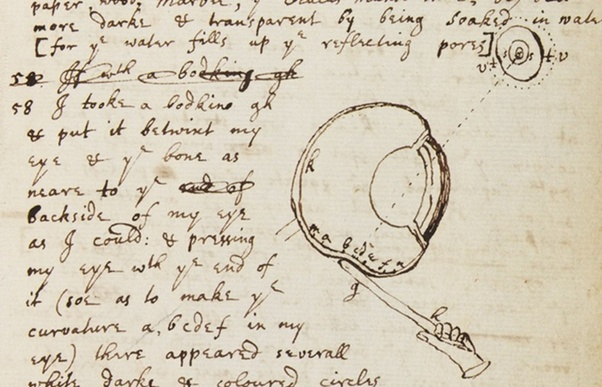 paper, wood, Marble, ye Oculus
more darke & transparent by being soaked in wate
[for ye water fills up ye reflecting pores]
58 If wth a bodking gh
58 I tooke a bodkine gh
& put it betwixt my
eye & ye bone as
neare to ye end of
backside of my eye
as I could: & pressing
my eye wth ye end of
it (soe as to make ye
curvature a, bcdef in my
eye) there appeared severall
white darke & coloured circles
k
m a b c d e f n
g
h
v t s s t v